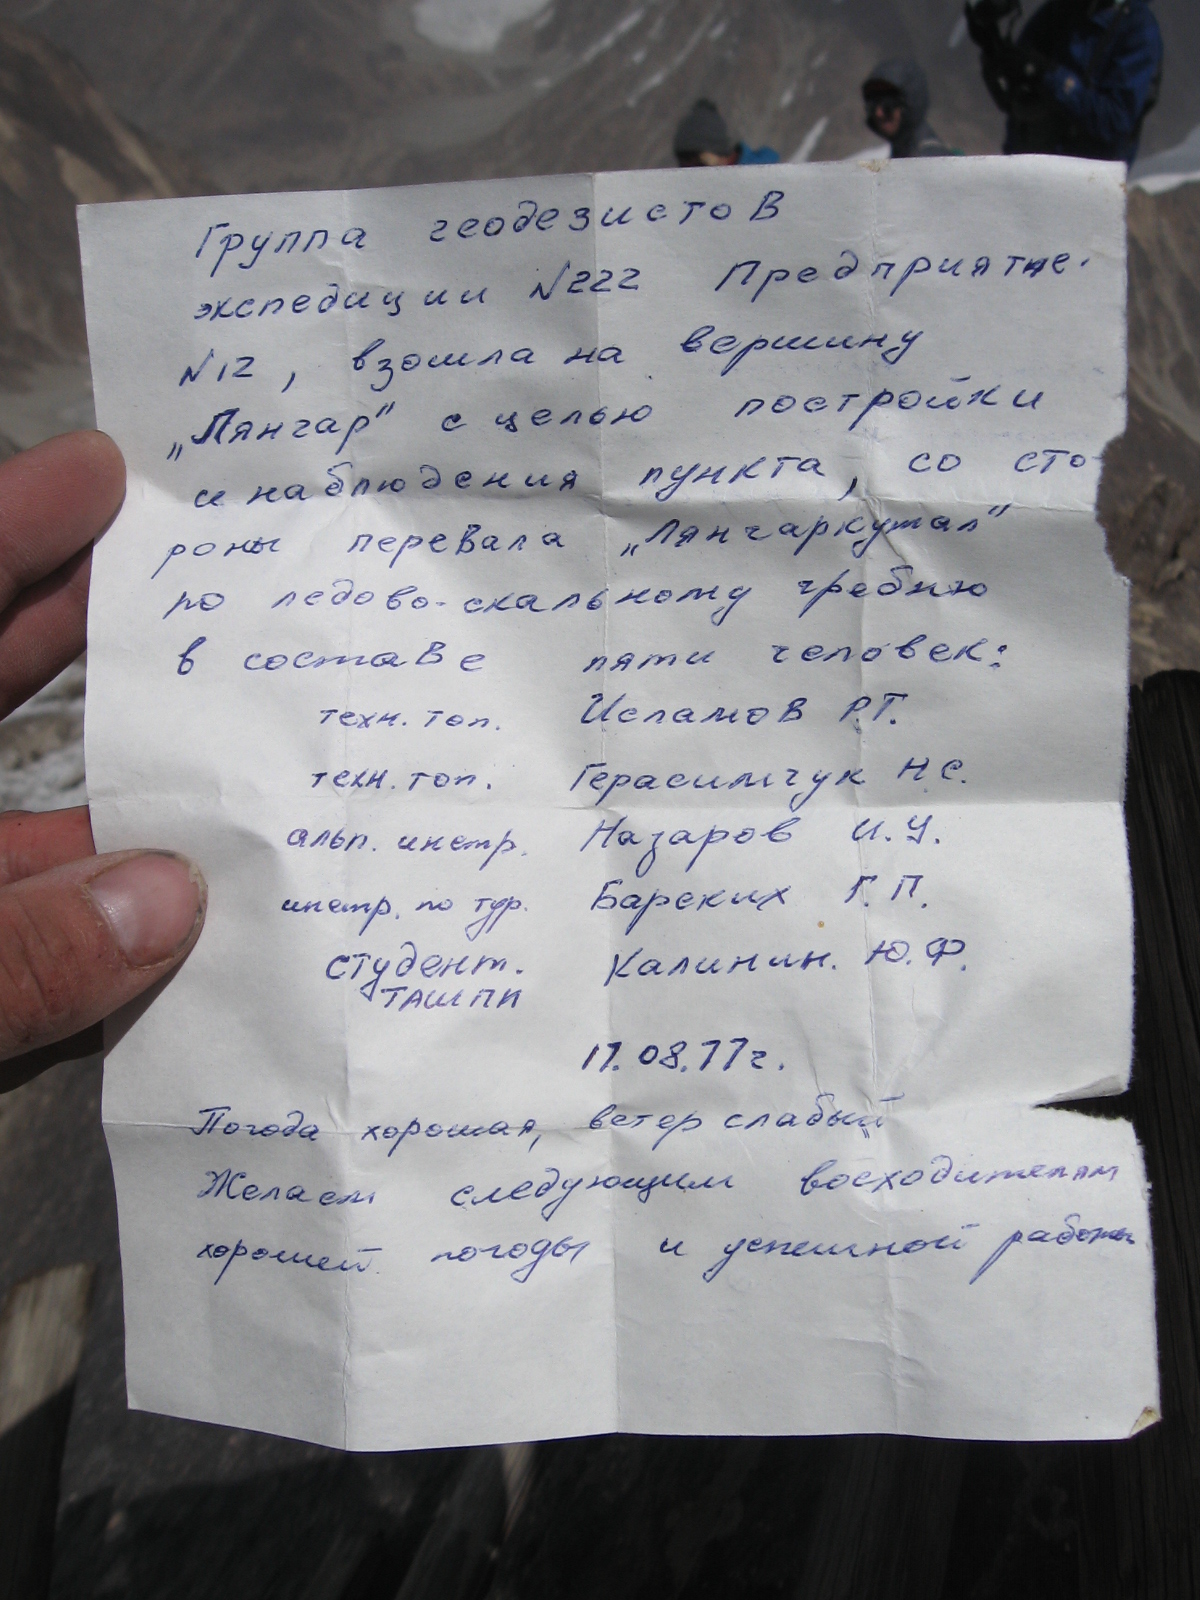 Группа геодезистов
экспедиции №222 Предприятие
№12, взошла на вершину
„Лянгар" с целью постройки
и наблюдения пункта, со сто-
роны перевала „Лянгаркутал"
по ледово-скальному гребню
в составе пяти человек:
техн. топ. Исламов Р.Г.
техн. топ. Герасимчук Н.С.
альп. инстр. Назаров И.У.
инстр. по тур. Барских Г.П.
студент. Калинин. Ю.Ф.
ТАШПИ
17.08.77г.
Погода хорошая, ветер слабый
Желаем следующим восходителям
хорошей погоды и успешной работы